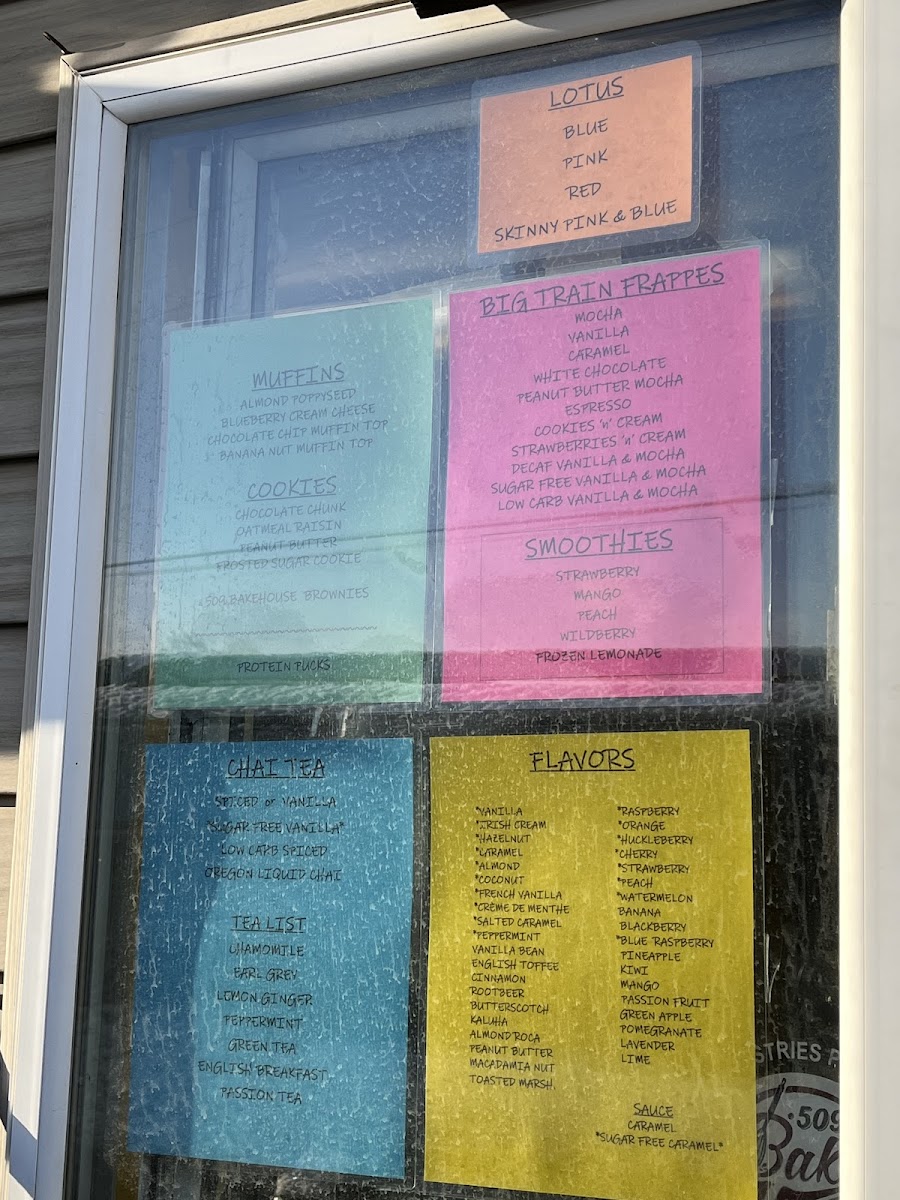 LOTUS
BLUE
PINK
RED
SKINNY PINK & BLUE
MUFFINS
ALMOND POPPYSEED
BLUEBERRY CREAM CHEESE
CHOCOLATE CHIP MUFFIN TOP
BANANA NUT MUFFIN TOP
COOKIES
CHOCOLATE CHUNK
OATMEAL RAISIN
PEANUT BUTTER
FROSTED SUGAR COOKIE
509 BAKEHOUSE BROWNIES
PROTEIN PUCKS
BIG TRAIN FRAPPES
MOCHA
VANILLA
CARAMEL
WHITE CHOCOLATE
PEANUT BUTTER MOCHA
ESPRESSO
COOKIES 'n' CREAM
STRAWBERRIES 'n' CREAM
DECAF VANILLA & MOCHA
SUGAR FREE VANILLA & MOCHA
LOW CARB VANILLA & MOCHA
SMOOTHIES
STRAWBERRY
MANGO
PEACH
WILDBERRY
FROZEN LEMONADE
CHAI TEA
SPICED or VANILLA
*SUGAR FREE VANILLA*
LOW CARB SPICED
OREGON LIQUID CHAI
TEA LIST
CHAMOMILE
EARL GREY
LEMON GINGER
PEPPERMINT
GREEN TEA
ENGLISH BREAKFAST
PASSION TEA
FLAVORS
*VANILLA
*IRISH CREAM
*HAZELNUT
*CARAMEL
*ALMOND
*COCONUT
*FRENCH VANILLA
*CRÈME DE MENTHE
*SALTED CARAMEL
*PEPPERMINT
VANILLA BEAN
ENGLISH TOFFEE
CINNAMON
ROOTBEER
BUTTERSCOTCH
KALUHA
ALMOND ROCA
PEANUT BUTTER
MACADAMIA NUT
TOASTED MARSH.
*RASPBERRY
*ORANGE
*HUCKLEBERRY
*CHERRY
*STRAWBERRY
*PEACH
*WATERMELON
BANANA
BLACKBERRY
*BLUE RASPBERRY
PINEAPPLE
KIWI
MANGO
PASSION FRUIT
GREEN APPLE
POMEGRANATE
LAVENDER
LIME
SAUCE
CARAMEL
*SUGAR FREE CARAMEL*
STRIES
509
Bak